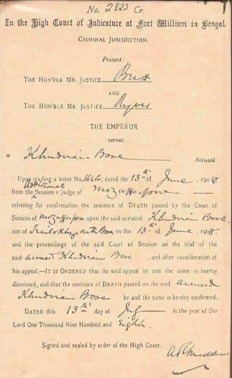 No. 2223 Cr.
In the High Court of Judicature at Fort William in Bengal.
CRIMINAL JURISDICTION.
Present:
THE HON'BLE MR. JUSTICE Brett
AND
THE HON'BLE MR. JUSTICE Ryves
THE EMPEROR
versus
Khudiram Bose
Accused.
Upon reading a letter No. 1616, dated the 13th of June 1908
from the Additional Sessions Judge of Mozufferpore
referring for confirmation the sentence of DEATH passed by the Court of
Session of Mozufferpore upon the said accused Khudiram Bose
son of Bose on the 13th of June 1908
and the proceedings of the said Court of Session on the trial of the
said accused Khudiram Bose and after consideration of
his appeal,—IT IS ORDERED that the said appeal be and the same is hereby
dismissed, and that the sentence of DEATH passed on the said accused
Khudiram Bose be and the same is hereby confirmed.
DATED this 13th day of July in the year of Our
Lord One Thousand Nine Hundred and Eight.
Signed and sealed by order of the High Court.